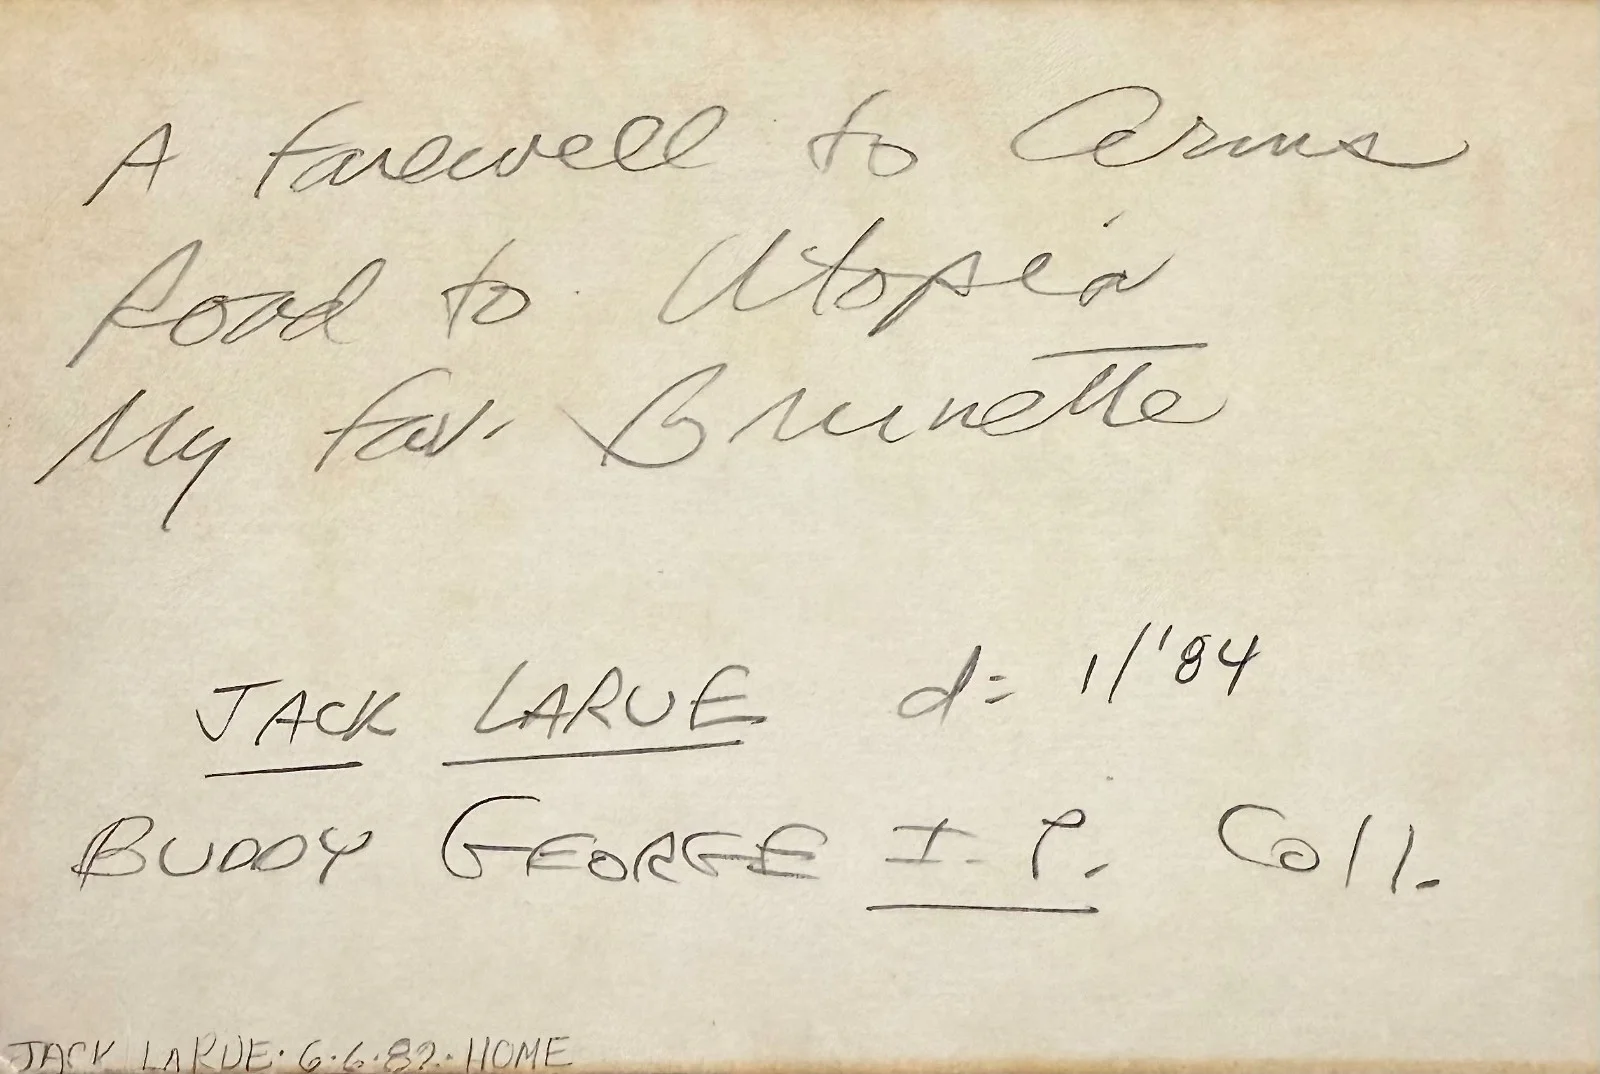 A Farewell to Arms
Road to Utopia
My Fav. Brunette
JACK LARUE d= 1/'84
BUDDY GEORGE I.P. Coll.
JACK LARUE · 6·6·82 · HOME